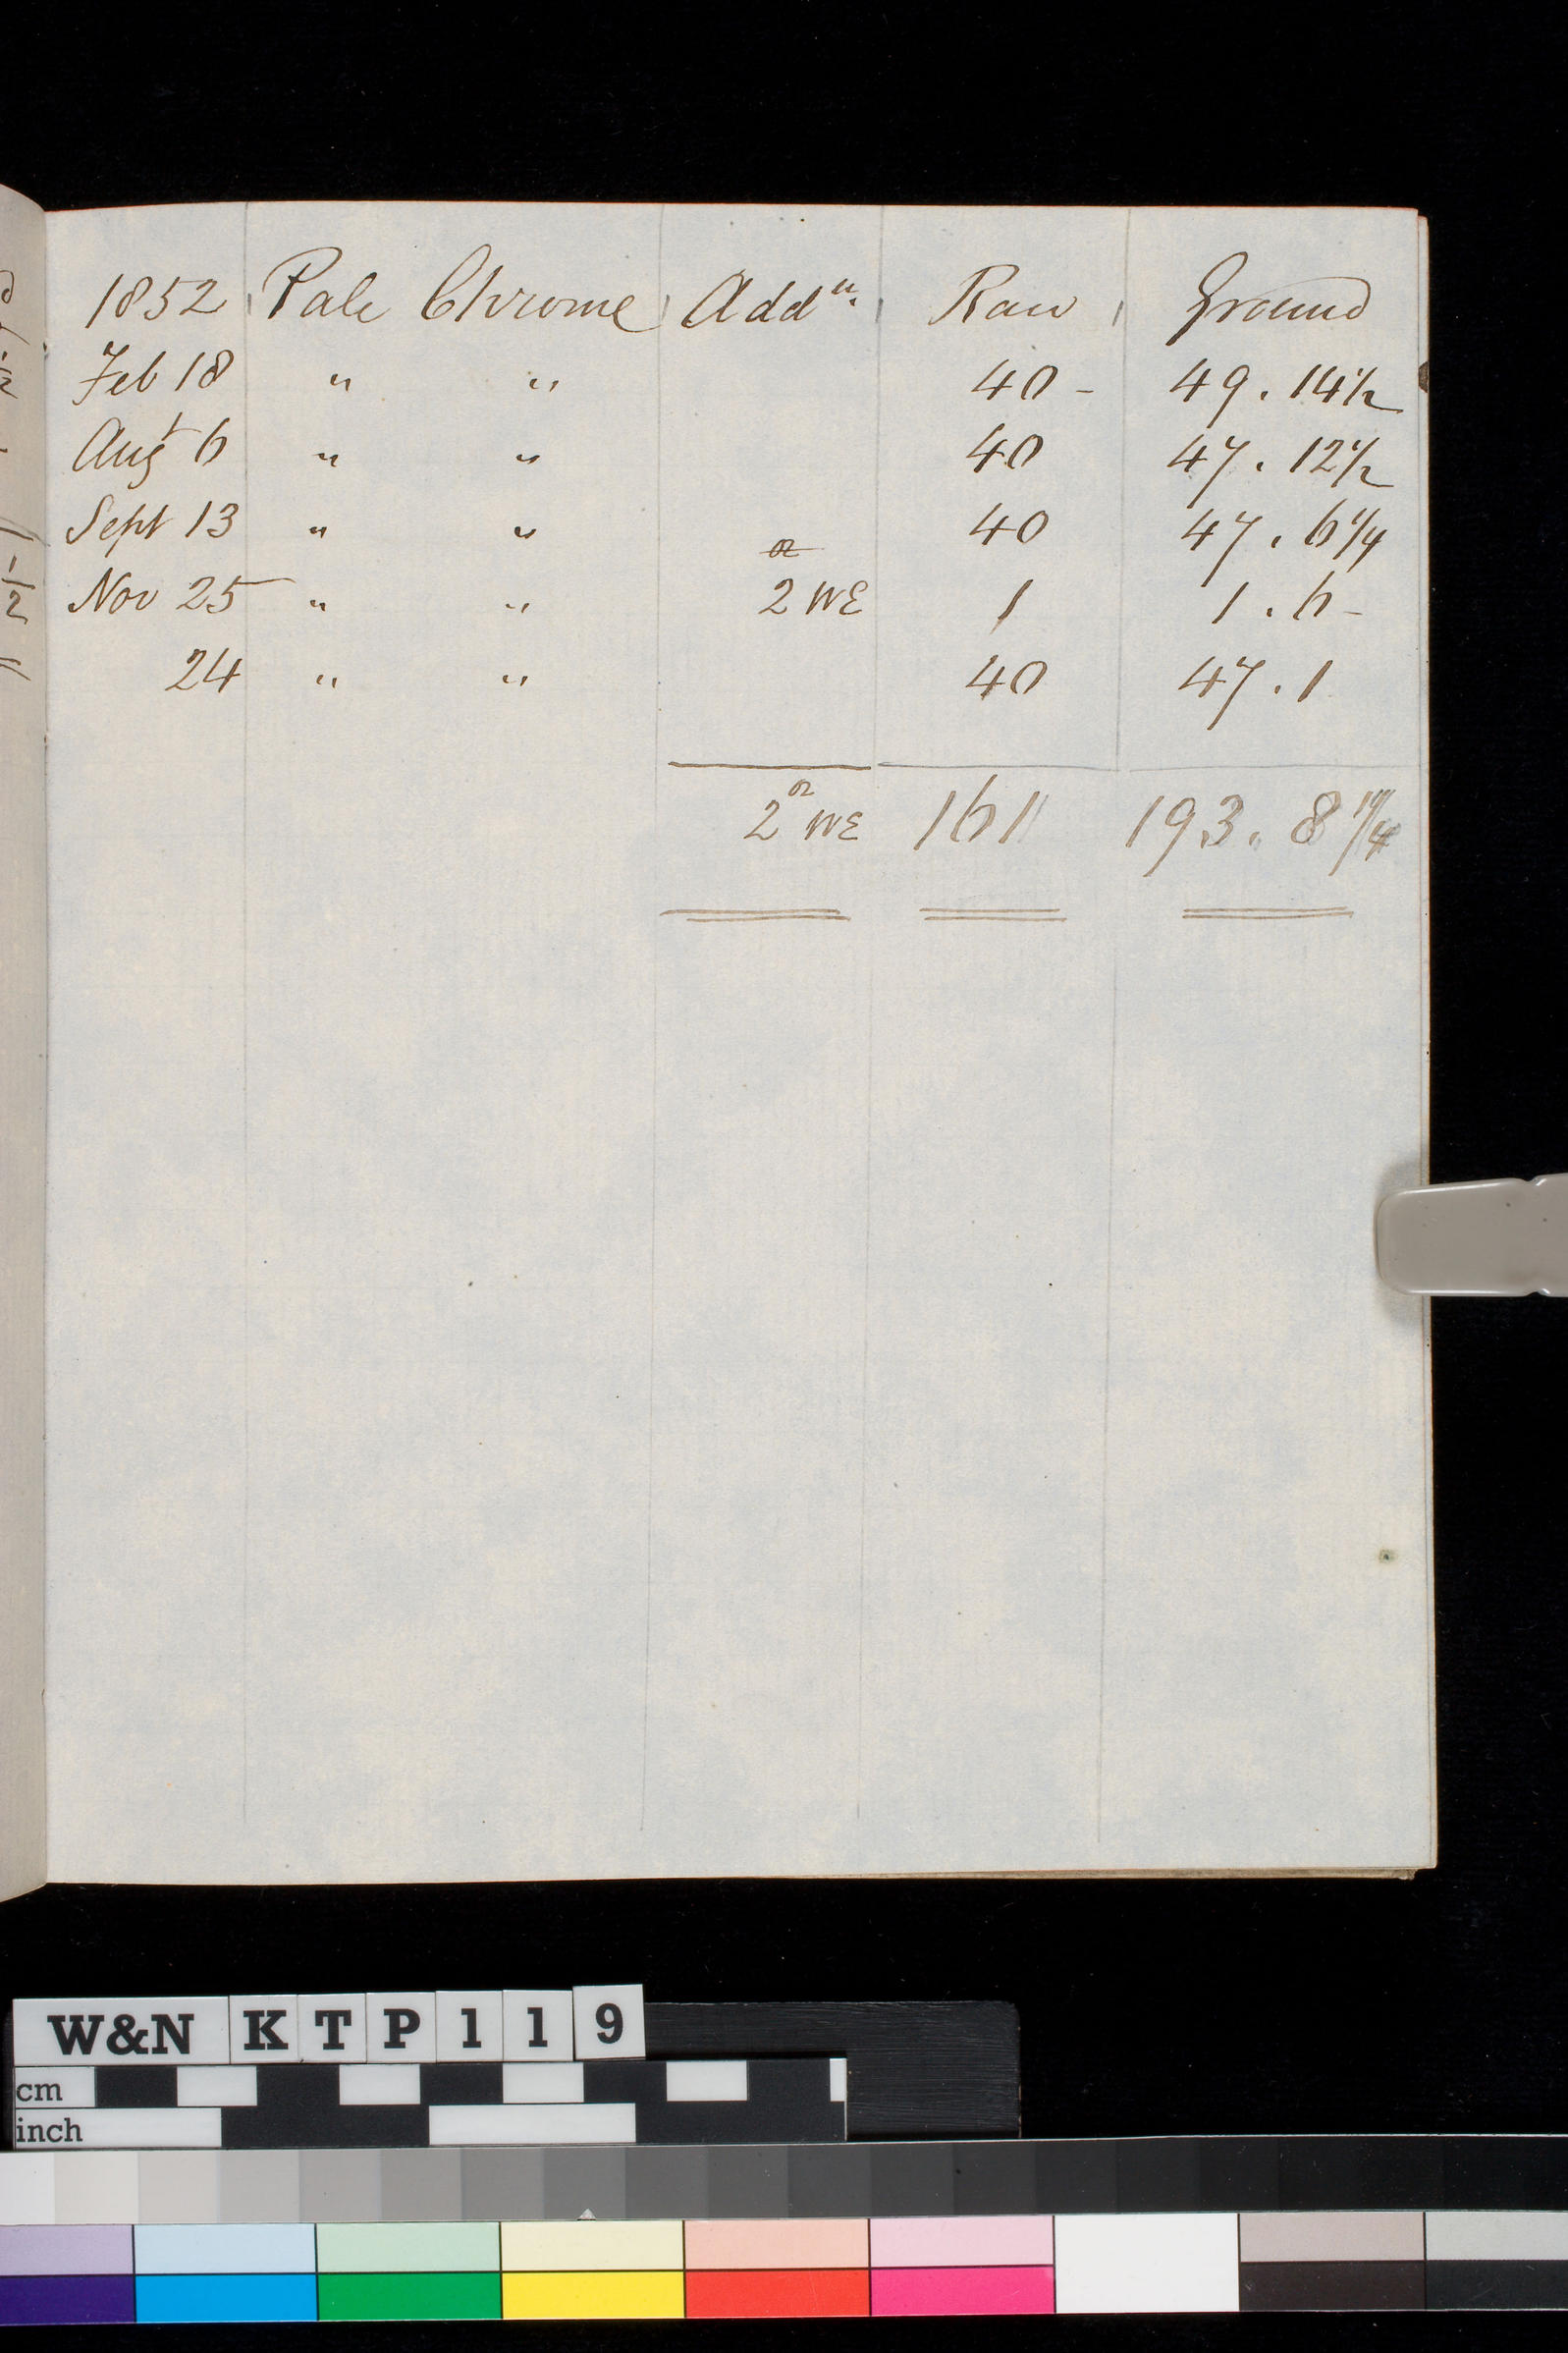 1852 Pale Chrome Addn. Raw Ground
Feb 18 " " 40 - 49 . 14 1/2
Augt 6 " " 40 47 . 12 1/2
Sept 13 " " 40 47 . 6 1/4
Nov 25 " " 2 oz WE 1 1 . 6 -
24 " " 40 47 . 1
2 oz WE 161 193 . 8 1/4
W&N KTP119
cm
inch